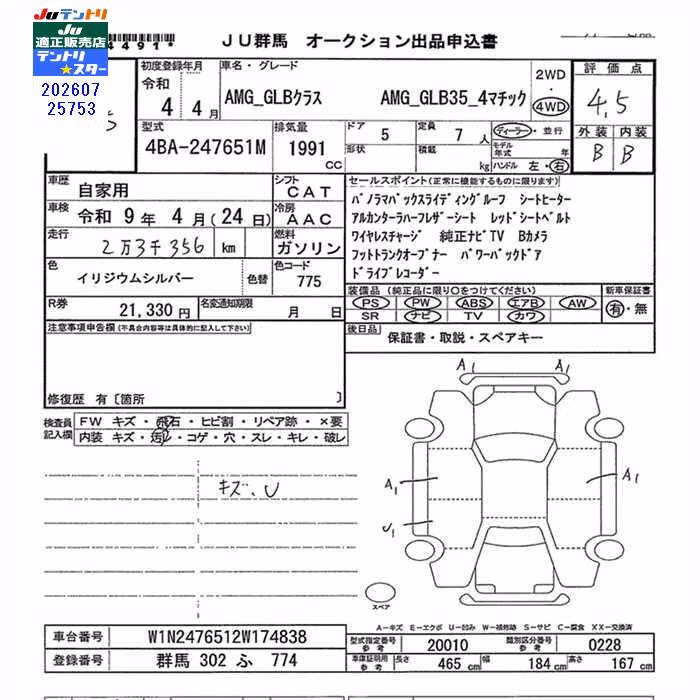 JUテントリ
JU
適正販売店
テントリ
★スター
202607
25753
4491*
JU群馬 オークション出品申込書
初度登録年月
令和
4 4月
車名・グレード
AMG_GLBクラス AMG_GLB35_4マチック
2WD
・
4WD
評価点
4.5
外装 内装
B B
型式
4BA-247651M
排気量
1991
CC
ドア 5
形状
定員 7 人
積載 kg
ディーラー・並行
モデル年式 年
ハンドル 左・右
車歴 自家用
シフト CAT
車検 令和 9年 4月(24日)
冷房 AAC
走行 2万3千356 km
燃料 ガソリン
色 イリジウムシルバー 色替
色コード 775
R券 21,330円
名変通知期限 月 日
セールスポイント(正常に機能するものに限ります)
パノラマパックスライディングルーフ シートヒーター
アルカンターラハーフレザーシート レッドシートベルト
ワイヤレスチャージ 純正ナビTV Bカメラ
フットトランクオープナー パワーバックドア
ドライブレコーダー
装備品 (純正品に限り○をつけてください)
PS PW ABS エアB AW
SR ナビ TV カワ
新車保証書
有・無
後日品 保証書・取説・スペアキー
注意事項申告欄(不具合内容等は具体的に記入して下さい)
修復歴 有〔箇所 〕
検査員記入欄
FW キズ・飛石・ヒビ割・リペア跡・×要
内装 キズ・汚レ・コゲ・穴・スレ・キレ・破レ
キズ、U
A1 A1
A1 A1
U1
スペア
A−キズ E−エクボ U−凹み W−補修跡 S−サビ C−腐食 XX−交換済
車台番号 W1N2476512W174838
登録番号 群馬 302 ふ 774
型式指定番号 参考 20010
類別区分番号 参考 0228
車庫証明用 参考 長さ 465 cm 幅 184 cm 高さ 167 cm